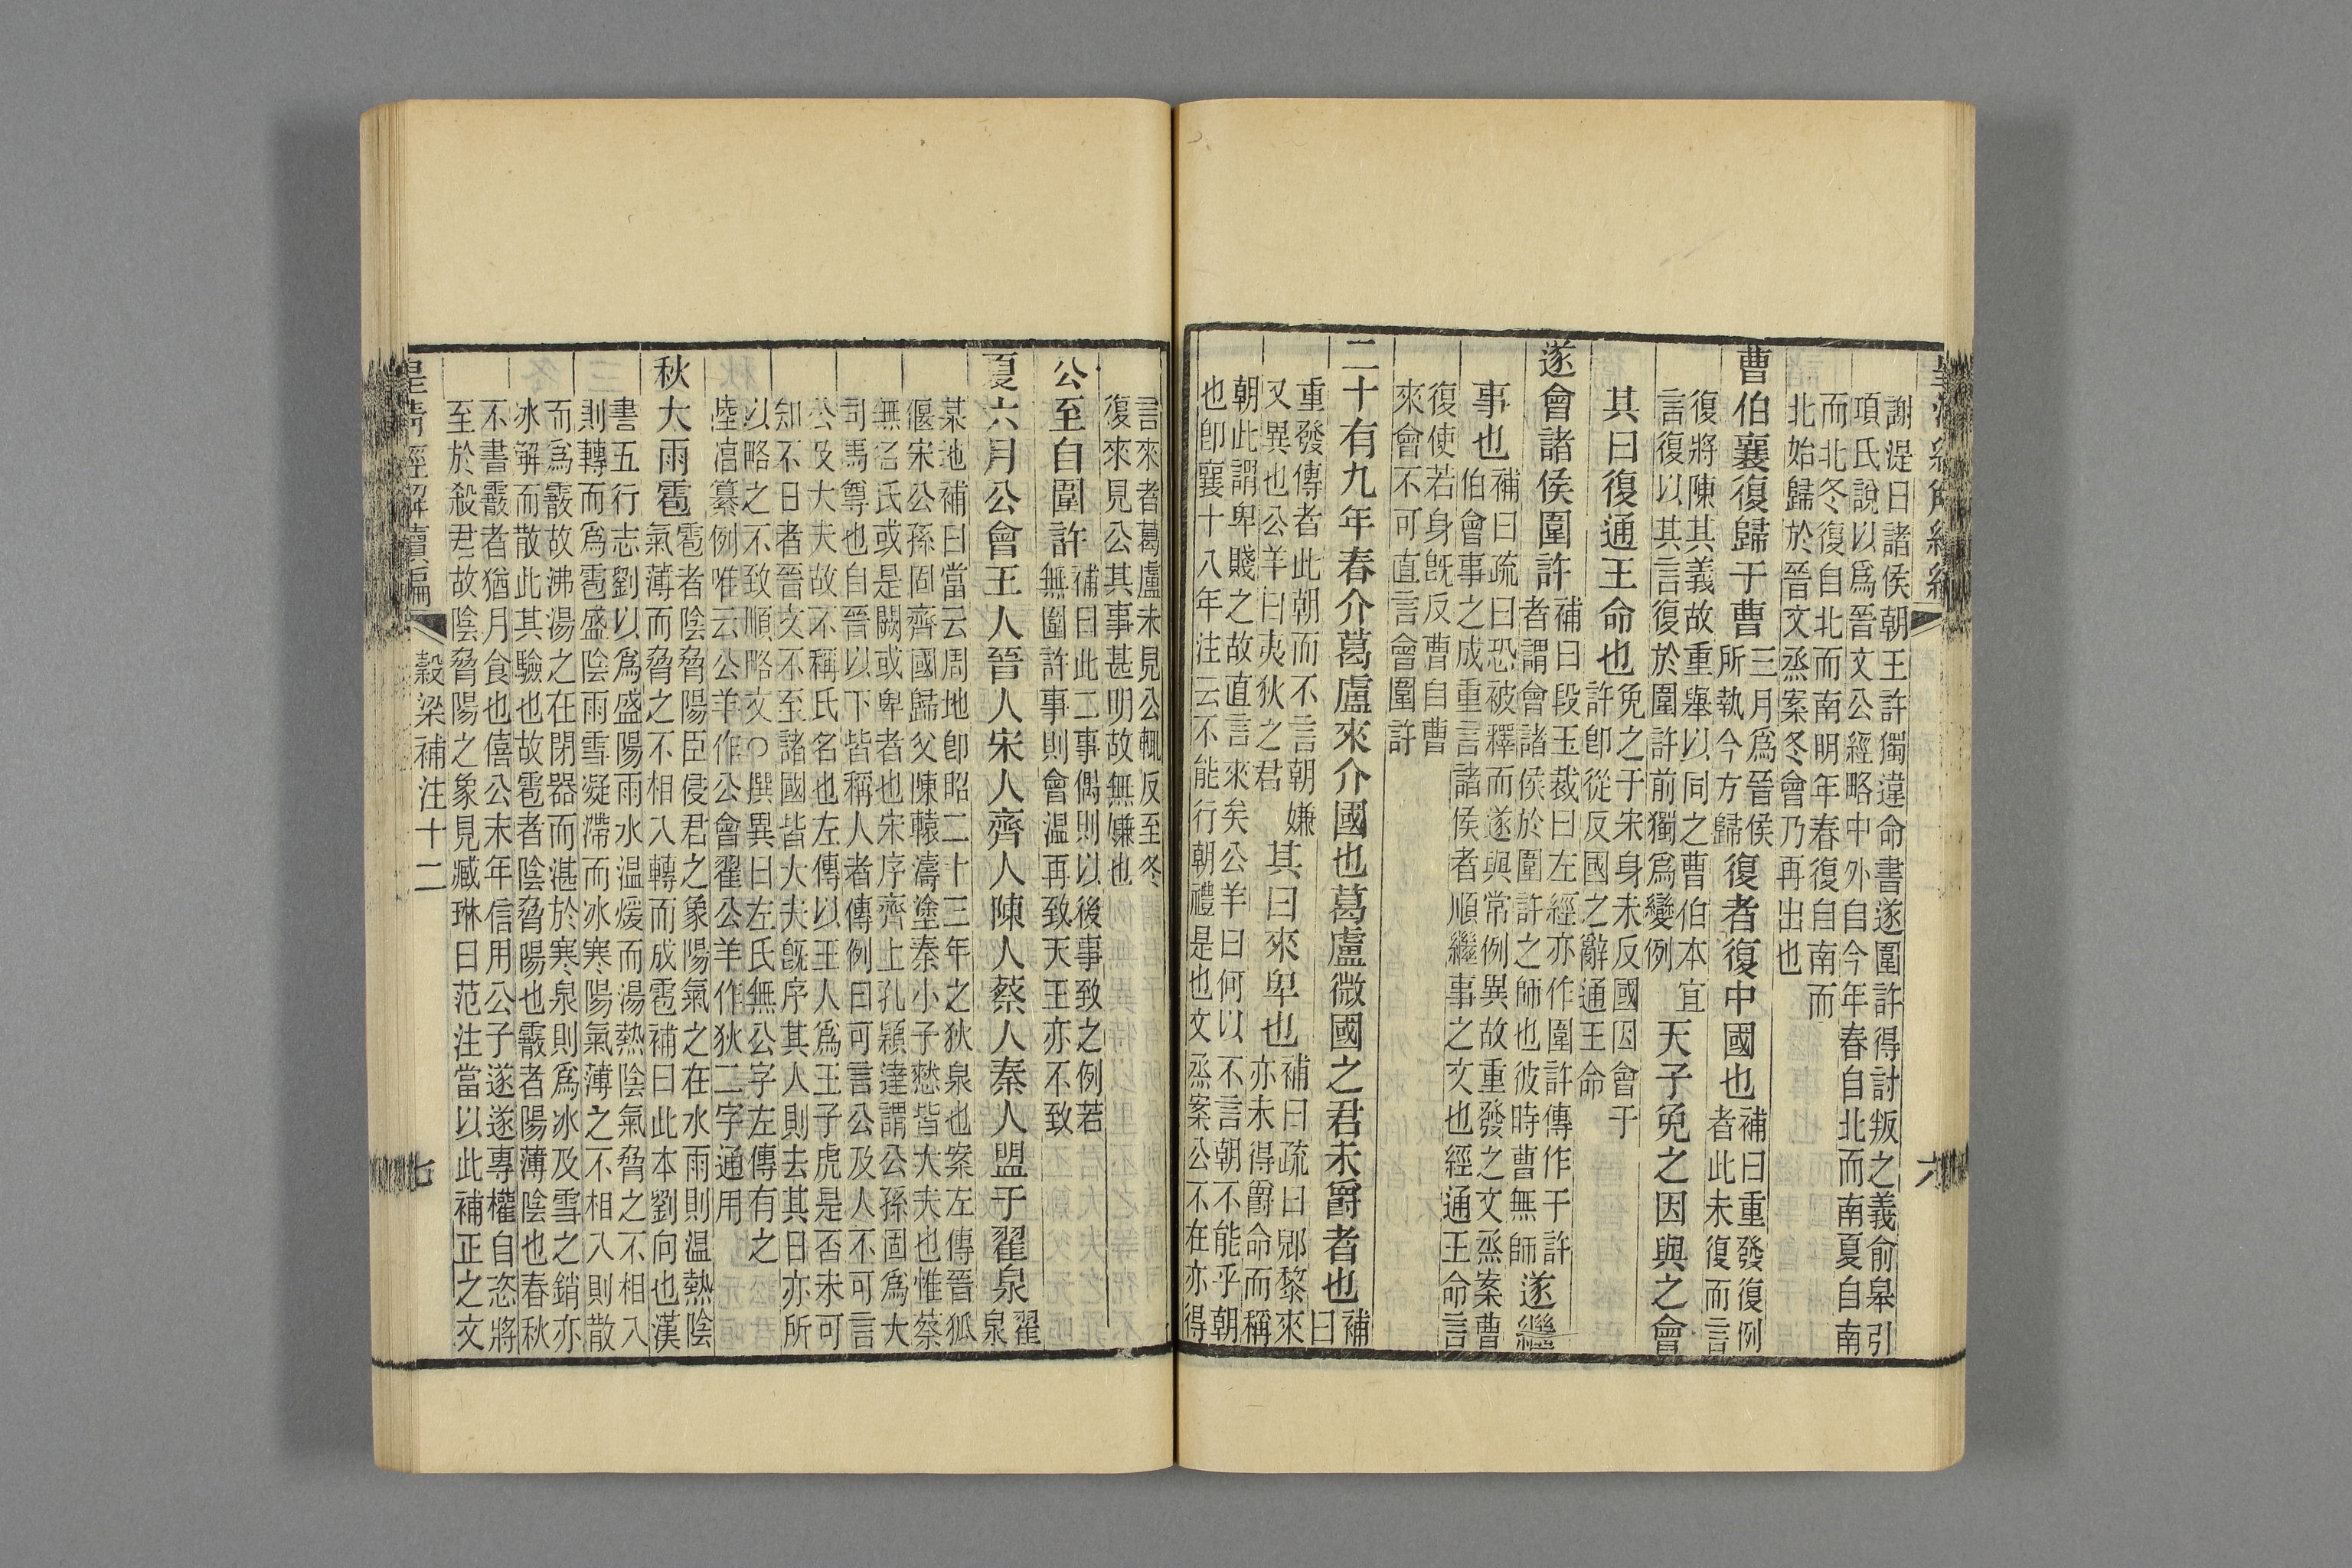 謝湜曰諸侯朝王許獨違命書遂圍許得討叛之義俞皐引
項氏說以爲晉文公經略中外自今年春自北而南夏自南
而北冬復自北而南明年春復自南而
北始歸於晉文烝案冬會乃再出也
曹伯襄復歸于曹三月爲晉侯所執今方歸復者復中國也補曰重發復例者此未復而言
復將陳其義故重舉以同之曹伯本宜
言復以其言復於圍許前獨爲變例天子免之因與之會
其曰復通王命也免之于宋身未反國因會于許卽從反國之辭通王命
遂會諸侯圍許補曰段玉裁曰左經亦作圍許傳作于許者謂會諸侯於圍許之師也彼時曹無師遂繼
事也補曰疏曰恐被釋而遂與常例異故重發之文烝案曹伯會事之成重言諸侯者順繼事之文也經通王命言
復使若身旣反曹自曹
來會不可直言會圍許
二十有九年春介葛盧來介國也葛盧微國之君未爵者也補曰
重發傳者此朝而不言朝嫌
又異也公羊曰夷狄之君其曰來卑也補曰疏曰郳黎來亦未得爵命而稱
朝此謂卑賤之故直言來矣公羊曰何以不言朝不能乎朝
也卽襄十八年注云不能行朝禮是也文烝案公不在亦得
言來者葛盧未見公輒反至冬
復來見公其事甚明故無嫌也
公至自圍許補曰此二事偶則以後事致之例若無圍許事則會温再致天王亦不致
夏六月公會王人晉人宋人齊人陳人蔡人秦人盟于翟泉翟泉
某地補曰當云周地卽昭二十三年之狄泉也案左傳晉狐
偃宋公孫固齊國歸父陳轅濤塗秦小子憖皆大夫也惟蔡
無名氏或是闕或卑者也宋序齊上孔穎達謂公孫固爲大
司馬尊也自晉以下皆稱人者傳例曰可言公及人不可言
公及大夫故不稱氏名也左傳以王人爲王子虎是否未可
知不日者晉文不至諸國皆大夫旣序其人則去其日亦所
以略之不致順略文○撰異曰左氏無公字左傳有之
陸淳纂例唯云公羊作公會翟公羊作狄二字通用
秋大雨雹雹者陰脅陽臣侵君之象陽氣之在水雨則温熱陰氣薄而脅之不相入轉而成雹補曰此本劉向也漢
書五行志劉以爲盛陽雨水温煖而湯熱陰氣脅之不相入
則轉而爲雹盛陰雨雪凝滯而冰寒陽氣薄之不相入則散
而爲霰故沸湯之在閉器而湛於寒泉則爲冰及雪之銷亦
冰解而散此其驗也故雹者陰脅陽也霰者陽薄陰也春秋
不書霰者猶月食也僖公末年信用公子遂遂專權自恣將
至於殺君故陰脅陽之象見臧琳曰范注當以此補正之文
皇淸經解續編 穀梁補注十二 七